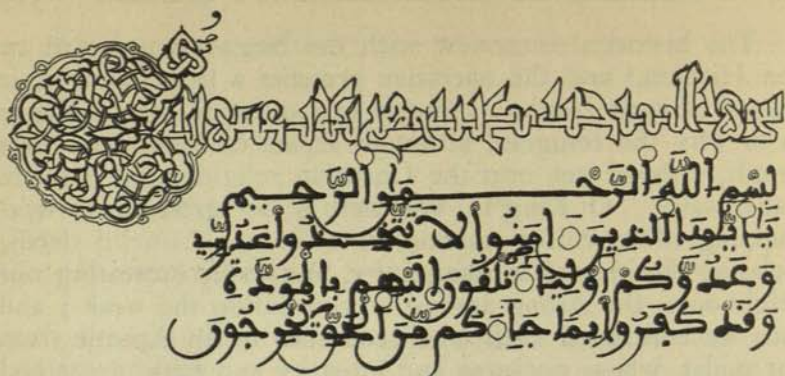 سورة
بسم الله الرحمن الرحيم
يأيها الذين ءامنوا لا تتخذوا عدوي
وعدوكم أولياء تلقون إليهم بالمودة
وقد كفروا بما جاءكم من الحق يخرجون